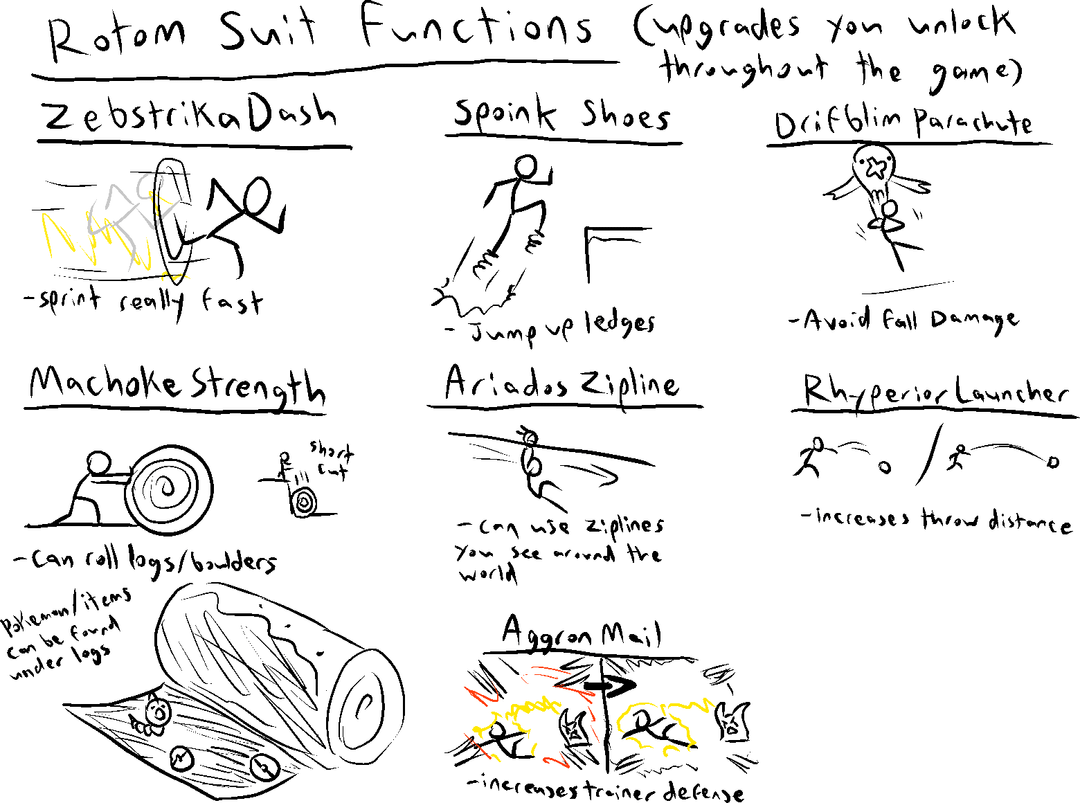 Rotom Suit Functions (upgrades you unlock
throughout the game)
Zebstrika Dash
-sprint really fast
Spoink Shoes
- Jump up ledges
Drifblim Parachute
-Avoid Fall Damage
Machoke Strength
short
cut
-Can roll logs/boulders
Pokemon/items
can be found
under logs
Ariados Zipline
-can use ziplines
you see around the
world
Rhyperior Launcher
-increases throw distance
Aggron Mail
-increases trainer defense